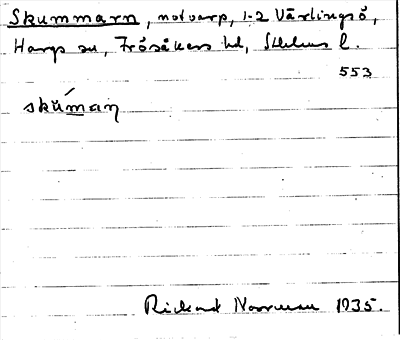 Skummarn, notvarp, 1-2 Växlingsö,
Hargs sn, Frösåkers hd, Sthlms l.
553
skúman
Rickard Norrman 1935.